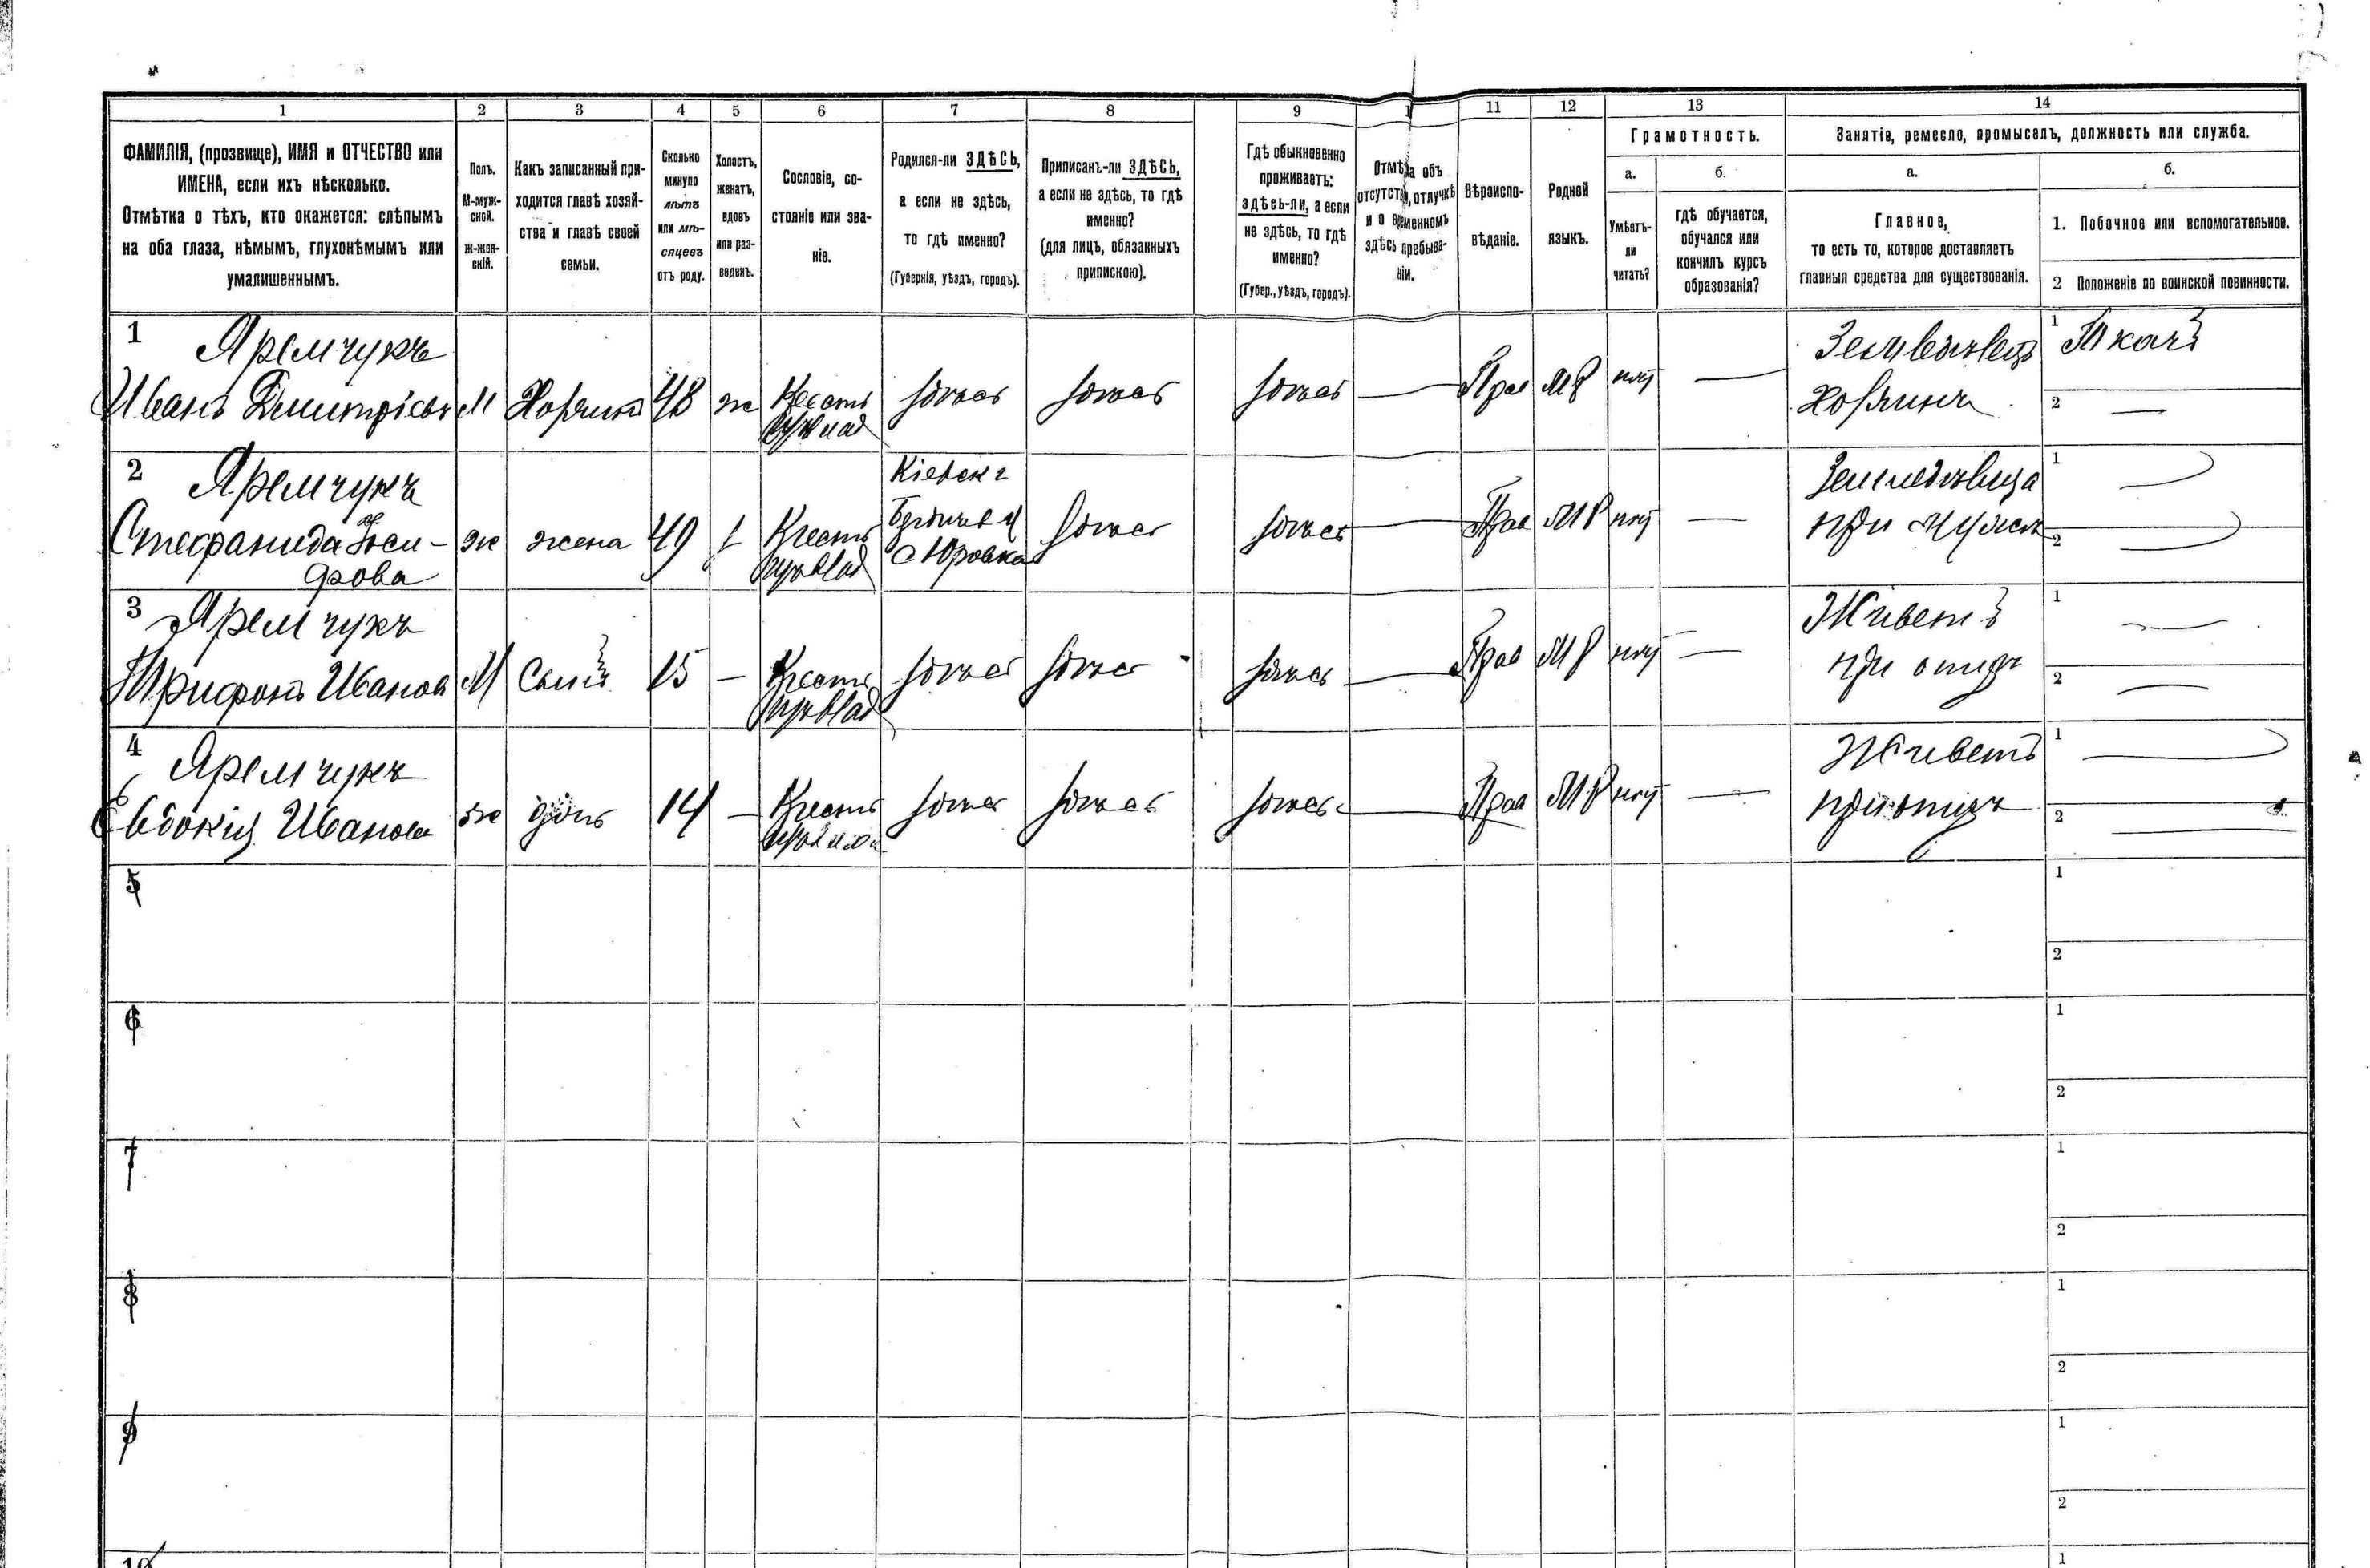 1 2 3 4 5 6 7 8 9 11 12 13 14
ФАМИЛІЯ, (прозвище), ИМЯ и ОТЧЕСТВО или
ИМЕНА, если ихъ нѣсколько.
Отмѣтка о тѣхъ, кто окажется: слѣпымъ
на оба глаза, нѣмымъ, глухонѣмымъ или
умалишеннымъ.
Полъ.
М-муж-
ской.
ж-жен-
скій.
Какъ записанный при-
ходится главѣ хозяй-
ства и главѣ своей
семьи.
Сколько
минуло
лѣтъ
или мѣ-
сяцевъ
отъ роду.
Холостъ,
женатъ,
вдовъ
или раз-
веденъ.
Сословіе, со-
стояніе или зва-
ніе.
Родился-ли ЗДѢСЬ,
а если не здѣсь,
то гдѣ именно?
(Губернія, уѣздъ, городъ).
Приписанъ-ли ЗДѢСЬ,
а если не здѣсь, то гдѣ
именно?
(для лицъ, обязанныхъ
припискою).
Гдѣ обыкновенно
проживаетъ:
здѣсь-ли, а если
не здѣсь, то гдѣ
именно?
(Губер., уѣздъ, городъ).
Отмѣтка объ
отсутствіи, отлучкѣ
и о временномъ
здѣсь пребыва-
ніи.
Вѣроиспо-
вѣданіе.
Родной
языкъ.
Грамотность.
а.
Умѣетъ-
ли
читать?
б.
гдѣ обучается,
обучался или
кончилъ курсъ
образованія?
Занятіе, ремесло, промыселъ, должность или служба.
а.
Главное,
то есть то, которое доставляетъ
главныя средства для существованія.
б.
1. Побочное или вспомогательное.
2 Положеніе по воинской повинности.
1 Яремчукъ
Иванъ Дмитріевъ М Хозяинъ 48 ж Крестъ здѣсь здѣсь здѣсь — Прав МР нѣтъ —
Хозяинъ
1 Ткачъ
2 —
2 Яремчукъ
Стефанида Іоси-
фова
ж жена 49 Крестъ
Кіевск г
Бердичев у
с Юровка
здѣсь здѣсь — Прав МР нѣтъ —
при мужѣ
1
2
3 Яремчукъ
Трифонъ Иванов М Сынъ 15 — Крестъ здѣсь здѣсь здѣсь — Прав МР нѣтъ —
Живетъ
при отцѣ
1
2
4 Яремчукъ
Евдокія Иванова ж дочь 14 — Крестъ здѣсь здѣсь здѣсь — Прав МР нѣтъ —
Живетъ
при отцѣ
1
2
5
1
2
6
1
2
7
1
2
8
1
2
9
1
2
10
1